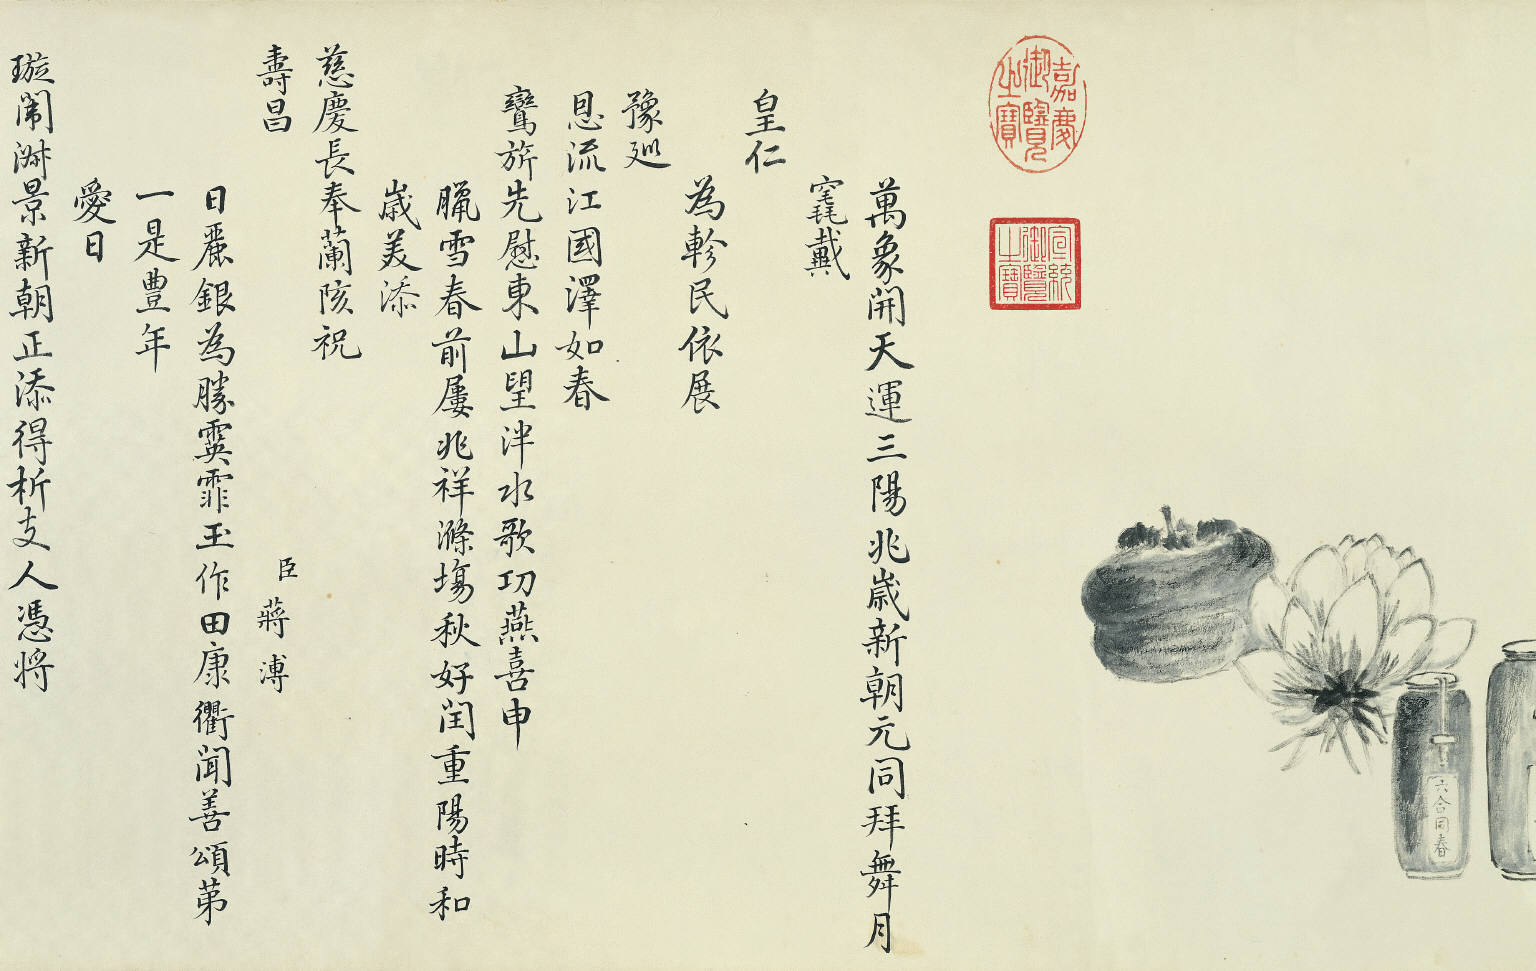 六合同春
嘉慶御覽之寶
宣統御覽之寶
萬象開天運三陽兆歲新朝元同拜舞月
窵戴
皇仁
為軫民依展
豫巡
恩流江國澤如春
鸞旂先慰東山望泮水歌功燕喜申
臘雪春前屢兆祥滌場秋好閏重陽時和
歲美添
慈慶長奉蘭陔祝
壽昌
臣蔣溥
日麗銀為勝霙霏玉作田康衢聞善頌苐
一是豊年
愛日
璇閨淑景新朝正添得析支人憑將